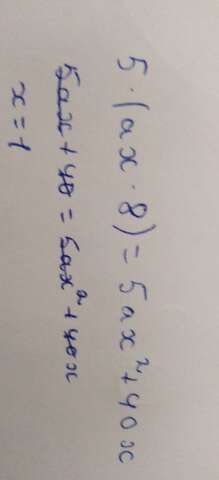 5·(ax·8)=5ax²+40x
5ax+40=5ax²+40x
x=1